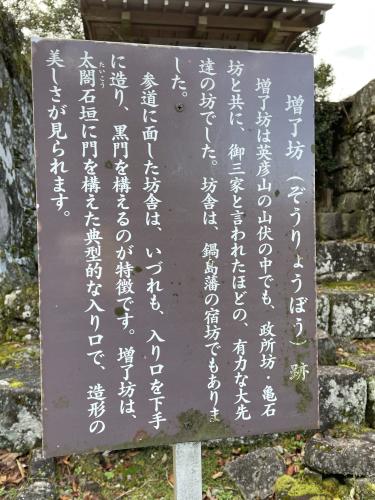 増了坊(ぞうりょうぼう)跡
増了坊は英彦山の山伏の中でも、政所坊・亀石
坊と共に、御三家と言われたほどの、有力な大先
達の坊でした。坊舎は、鍋島藩の宿坊でもありま
した。
参道に面した坊舎は、いづれも、入り口を下手
に造り、黒門を構えるのが特徴です。増了坊は、
太閤石垣に門を構えた典型的な入り口で、造形の
たいこう
美しさが見られます。